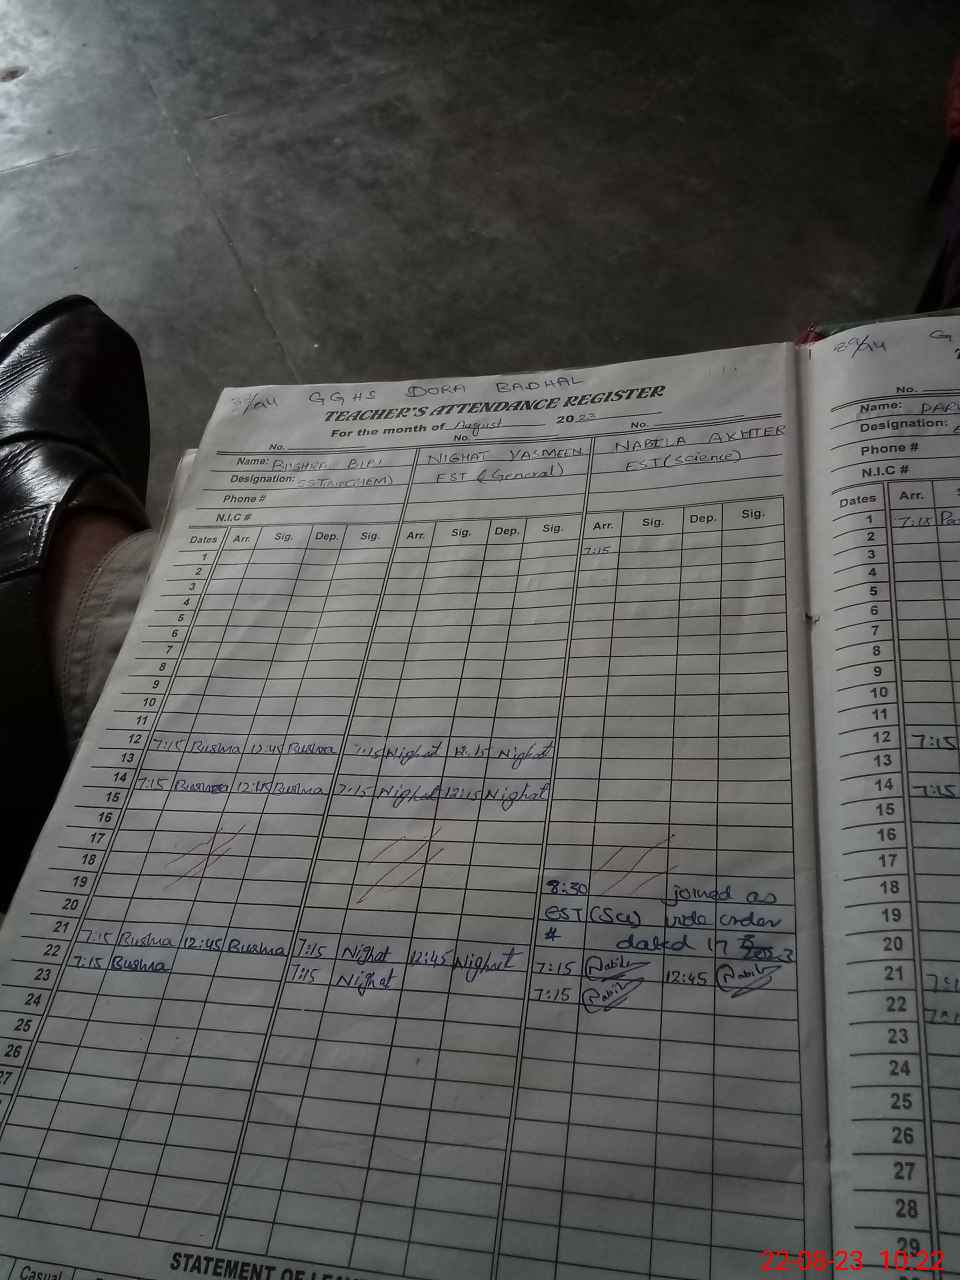 GGHS DORA BADHAL
TEACHER'S ATTENDANCE REGISTER
For the month of August 2023
No. No. No.
Name: BUSHRA BIBI NIGHAT YASMEEN NABILA AKHTER
Designation: EST (General) EST (Science)
Phone #
N.I.C #
Dates Arr. Sig. Dep. Sig. Arr. Sig. Dep. Sig. Arr. Sig. Dep. Sig.
1 7:15
2
3
4
5
6
7
8
9
10
11
12 7:15 Bushra 12:45 Bushra 7:15 Nighat 12:15 Nighat
13
14 7:15 Bushra 12:15 Bushra 7:15 Nighat 12:15 Nighat
15
16
17
18
19 8:30 joined as
20 EST (Sci) vide order
# dated 17
21 7:15 Bushra 12:45 Bushra 7:15 Nighat 12:45 Nighat 7:15 Nabila 12:45 Nabila
22 7:15 Bushra 7:15 Nighat 7:15 Nabila
23
24
25
26
27
STATEMENT OF
Casual
No.
Name:
Designation:
Phone #
N.I.C #
Dates Arr.
1 7:15
2
3
4
5
6
7
8
9
10
11
12 7:15
13
14 7:15
15
16
17
18
19
20
21
22
23
24
25
26
27
28
29
22-08-23 10:22